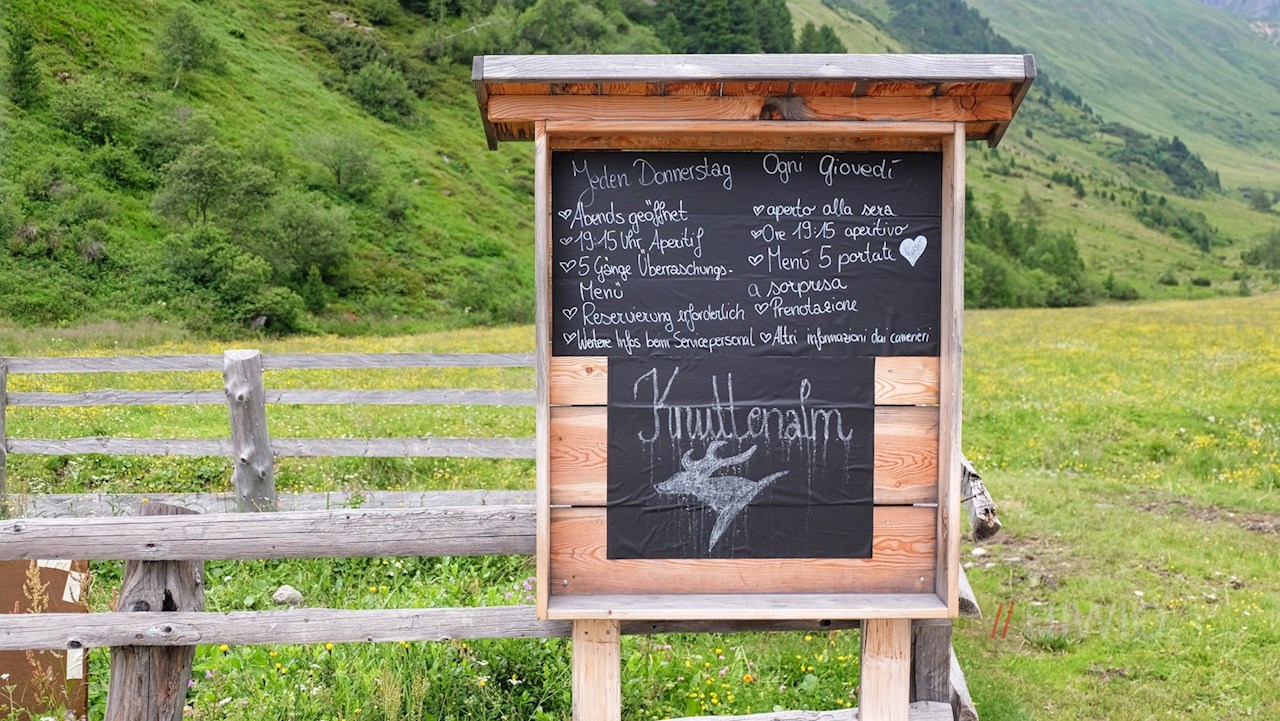 Jeden Donnerstag
Abends geöffnet
19:15 Uhr Aperitif
5 Gänge Überraschungs-
Menü
Reservierung erforderlich
Weitere Infos beim Servicepersonal
Ogni Giovedí
aperto alla sera
Ore 19:15 aperitivo
Menú 5 portate
a sorpresa
Prenotazione
Altri informazioni dai camerieri
Knuttenalm